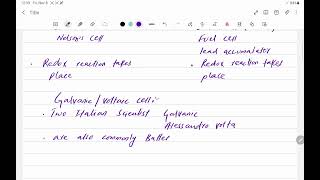 Nelson's cell Fuel cell
lead accumulator
• Redox reaction takes place • Redox reaction takes place
Galvanic/Voltaic cell:-
• Two Italian Scientist Galvanic
Alessandro volta
• are also commonly Batter